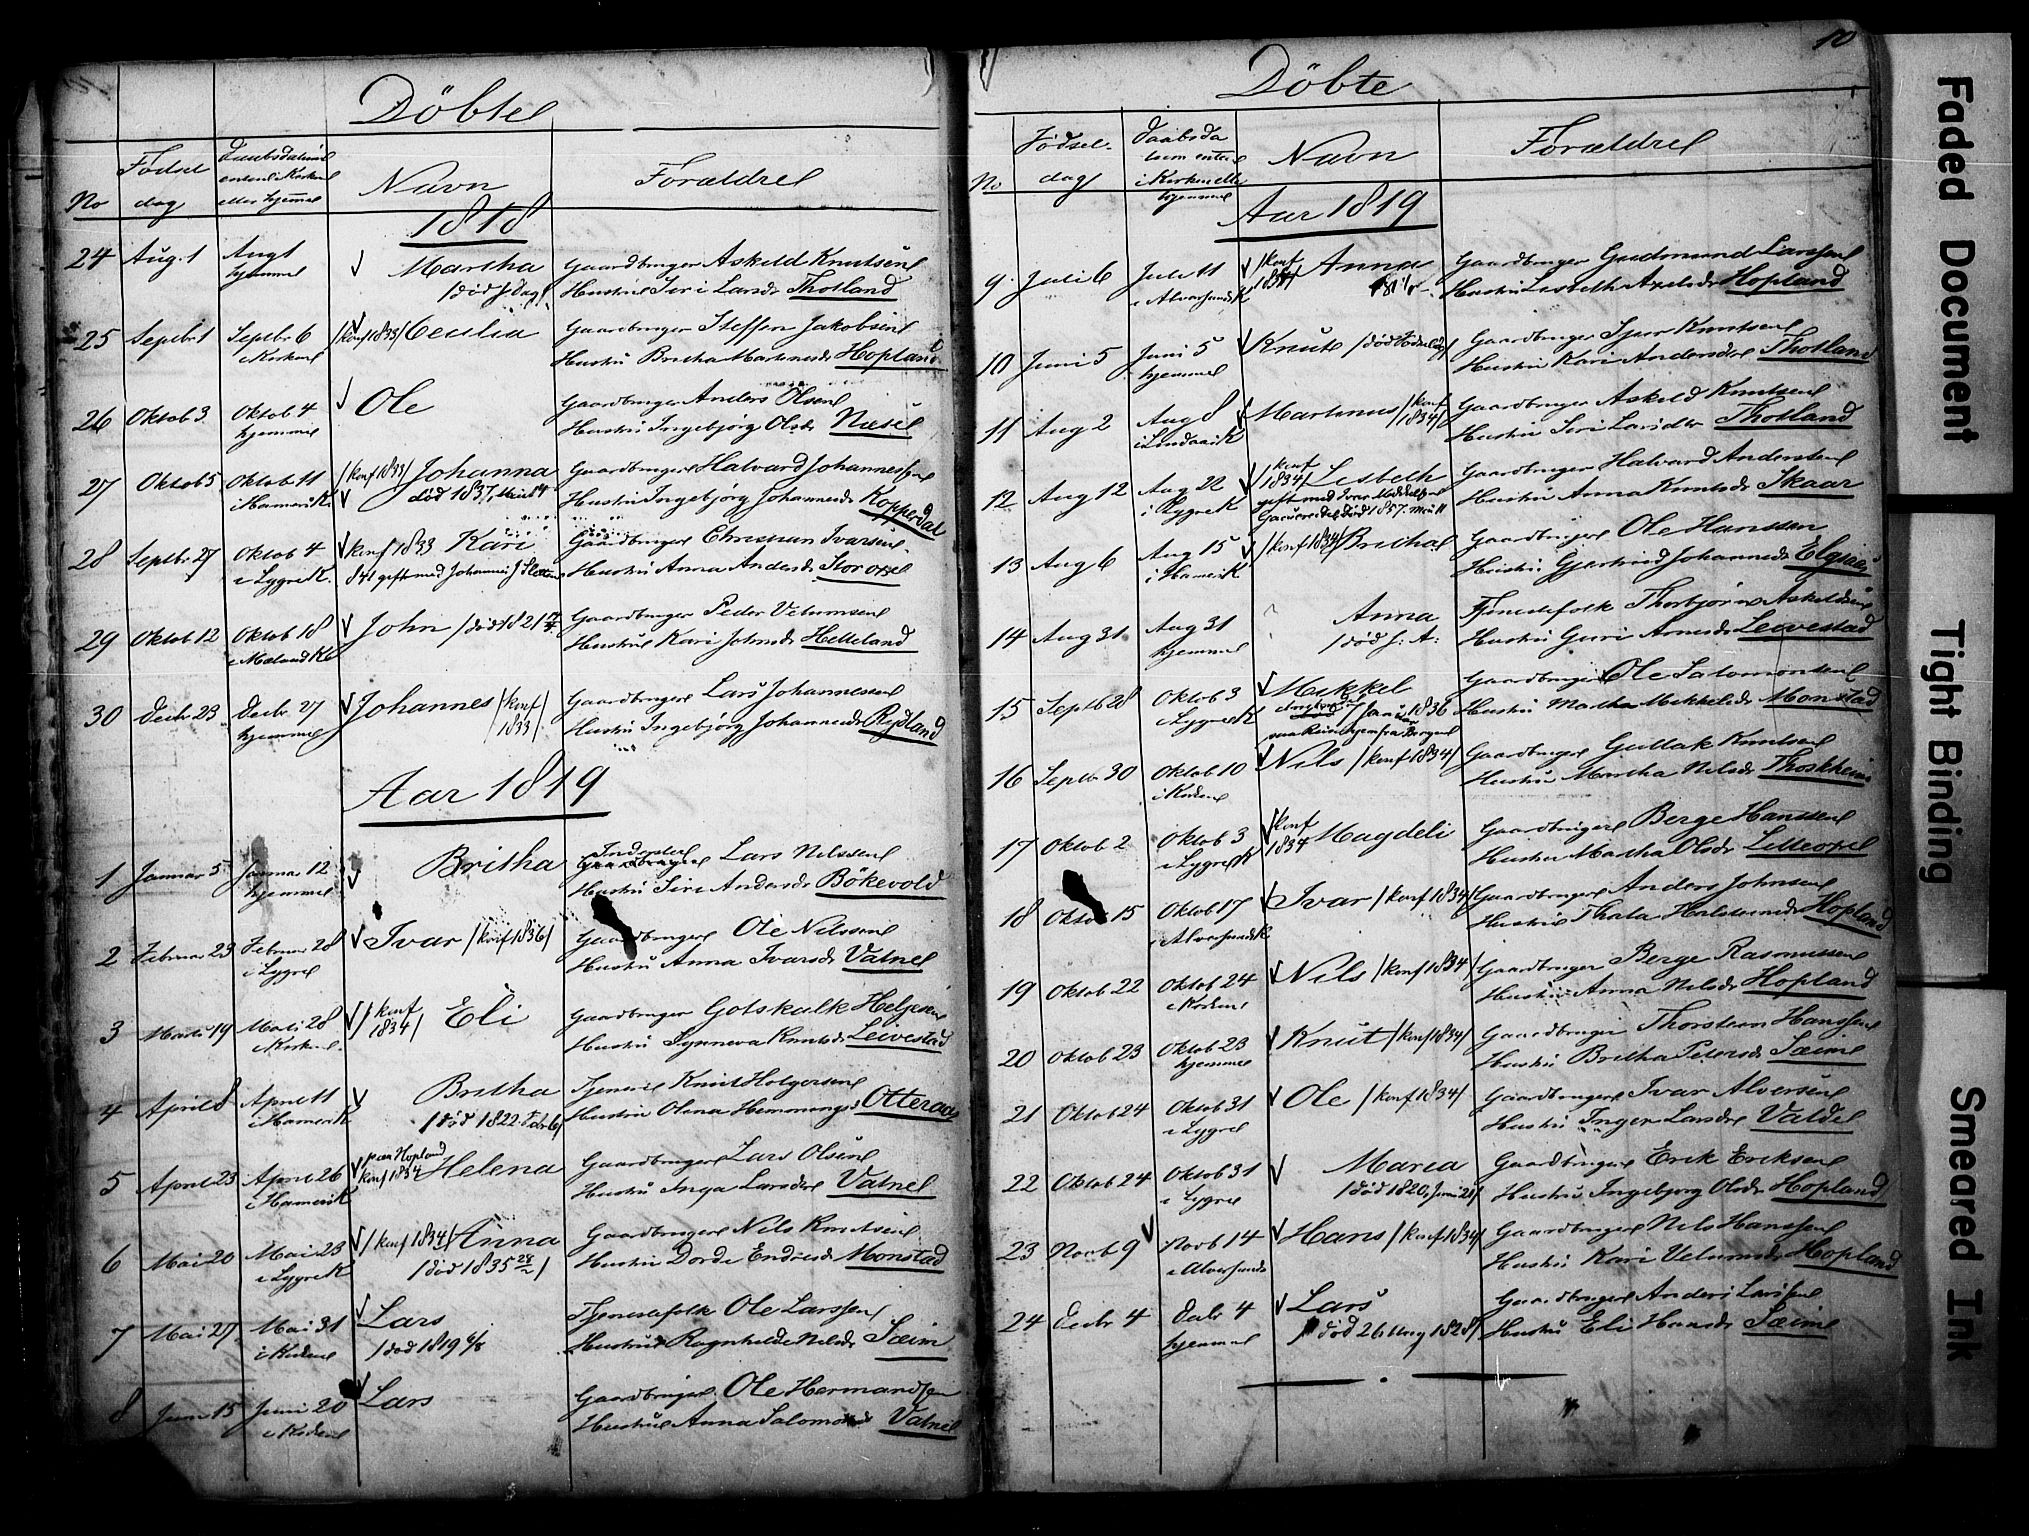 Döbte
No
Födsel dag
Daabsdatum enten i Kirken eller hjemme
Navn
Forældre
1818
24 Aug. 1 Aug 1 hjemme Martha /död s: Dag/ Gaardbruger Askeld Knutsen
Hustru Siri Larsdr Thotland
25 Septbr 1 Septbr 6 i Kirken /konf 1833/ Cecilia Gaardbruger Steffen Jakobsen
Hustru Britha Martinusdr Hopland
26 Oktob 3 Oktob 4 hjemme Ole Gaardbruger Anders Olsen
Hustru Ingebjörg Olsdr Næse
27 Oktob 5 Oktob 11 i Hamre K. /konf 1833/ Johanna död 1837 Gaardbruger Halvard Johannessen
Hustru Ingebjörg Johannesdr Kopperdal
28 Septbr 27 Oktob 4 i Lygre K. konf 1833 Kari 841 gift med Johannes J Sletten Gaardbruger Christian Ivarsen
Hustru Anna Andersdr Storoxe
29 Oktob 12 Oktob 18 i Mæland K John /död 1821 Gaardbruger Peder Velumsen
Hustru Kari Johnsdr Helleland
30 Decbr 23 Decbr 27 hjemme Johannes /konf 1833/ Gaardbruger Lars Johannessen
Hustru Ingebjörg Johannesdr Rydland
Aar 1819
1 Januar 5 Januar 12 hjemme Britha Inderste Lars Nilssen
Hustru Siri Andersdr Bökevold
2 Februar 23 Februar 28 i Lygre Ivar /konf 1836/ Gaardbruger Ole Nilssen
Hustru Anna Ivarsdr Vatne
3 Marts 19 Marts 28 i Kirken /konf 1834/ Eli Gaardbruger Gotskalk Helgesen
Hustru Synneva Knutsdr Leivestad
4 April 8 April 11 i Hamre K Britha /död 1822 Febr 6/ Tjener Knut Holgersen
Hustru Olena Hemmings Otteraa
5 April 23 April 26 i Hamre K paa Hopland konf 1834 Helena Gaardbruger Lars Olsen
Hustru Inga Larsdr Vatne
6 Mai 20 Mai 23 i Lygre K /konf 1834/ Anna /död 1835 24/2/ Gaardbruger Nils Knutsen
Hustru Dorde Endresdr Monstad
7 Mai 27 Mai 31 i Kirken Lars /död 1819 4/8 Tjenestefolk Ole Larssen
Hustru Ragnhilde Nilsdr Sæim
8 Juni 15 Juni 20 i Kirken Lars Gaardbruger Ole Hermandsen
Hustru Anna Salomonsdr Vatne
10
Döbte
No
Födsel dag
Daabsdatum enten i Kirken eller hjemme
Navn
Forældre
Aar 1819
9 Juli 6 Juli 11 i Alversund K /konf 1834/ Anna Gaardbruger Gudmund Larssen
Hustru Lisbetha Axelsdr Hopland
10 Juni 5 Juni 5 hjemme Knut /död Gaardbruger Sjur Knutsen
Hustru Kari Andersdr Thotland
11 Aug 2 Aug 8 i Lindaas K Martinus /konf 1834/ Gaardbruger Askeld Knutsen
Hustru Siri Larsdtr Thotland
12 Aug 12 Aug 22 i Lygre K /konf 1834/ Lisbeth gift med Ivar död 1857 Gaardbruger Halvard Andersen
Hustru Anna Knutsdr Skaar
13 Aug 6 Aug 15 i Hamre K /konf 1834/ Britha Gaardbruger Ole Hanssen
Hustru Gjertrud Johannesdr Elgnæs
14 Aug 31 Aug 31 hjemme Anna /död s: A: Tjenestefolk Thorbjörn Askeldsen
Hustru Guri Arnesdr Leivestad
15 Septb 28 Oktob 3 i Lygre K Mikkel Janúar 1836 paa Reise hjem fra Bergen Gaardbruger Ole Salomonsen
Hustru Martha Mikkelsdr Monstad
16 Septbr 30 Oktob 10 i Kirken Nils /konf 1834/ Gaardbruger Gullak Knutsen
Hustru Martha Nilsdr Thoskheim
17 Oktob 2 Oktob 3 i Lygre K /konf 1834 Magdeli Gaardbruger Berge Hanssen
Hustru Martha Olsdr Lilleoxe
18 Oktob 15 Oktob 17 i Alversund K Ivar /konf 1834/ Gaardbruger Anders Johnsen
Hustru Thala Halsteinsdr Hopland
19 Oktob 22 Oktob 24 i Kirken Nils /konf 1834/ Gaardbruger Berge Rasmussen
Hustru Anna Nilsdr Hopland
20 Oktob 23 Oktob 23 hjemme Knut /konf 1834/ Gaardbruger Thorstein Hanssen
Hustru Britha Petersdr Sæim
21 Oktob 24 Oktob 31 i Lygre Ole /konf 1834/ Gaardbruger Ivar Alversen
Hustru Inger Larsdr Valde
22 Oktob 24 Oktob 31 i Lygre Maria /död 1820, Juni 28/ Gaardbruger Erik Eriksen
Hustru Ingebjorg Olsdr Hopland
23 Novb 9 Novb 14 i Alversund Hans /konf 1834/ Gaardbruger Nils Hanssen
Hustru Kari Velumsdr Hopland
24 Decbr 4 Decbr 4 hjemme Lars död 26 Aug 1828/ Gaardbruger Anders Larssen
Hustru Eli Hansdr Sæim
Faded Document
Tight Binding
Smeared Ink